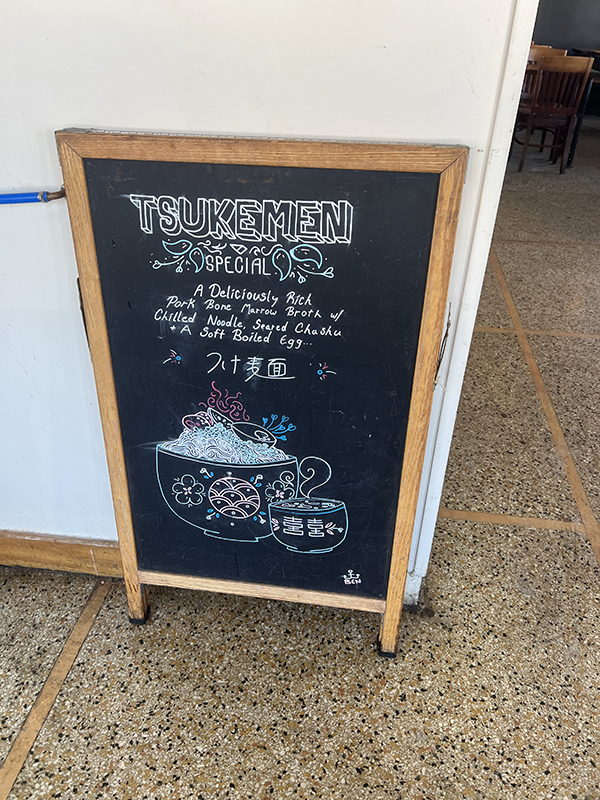 TSUKEMEN
SPECIAL
A Deliciously Rich
Pork Bone Marrow Broth w/
Chilled Noodle, Seared Chashu
+ A Soft Boiled Egg...
つけ麦面
囍
BEN